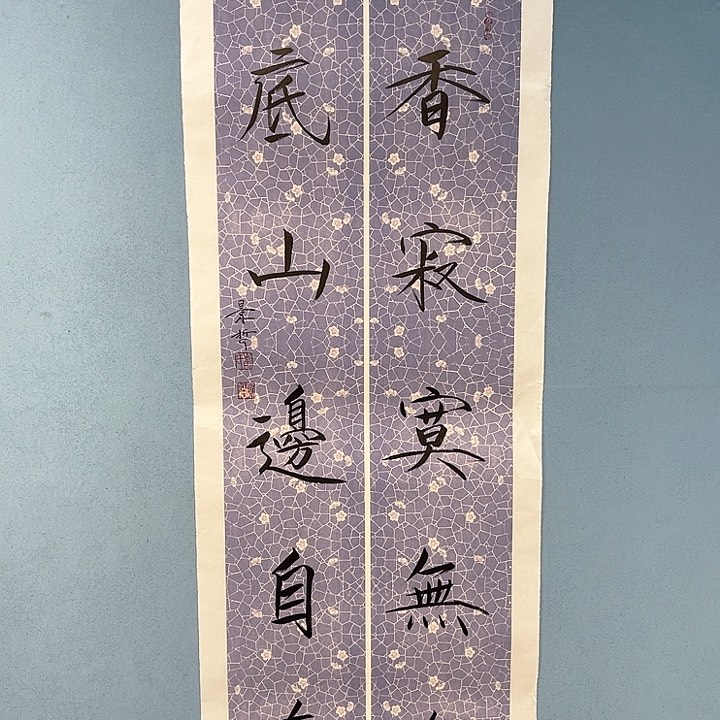 香寂寞無
底山邊自
景哲